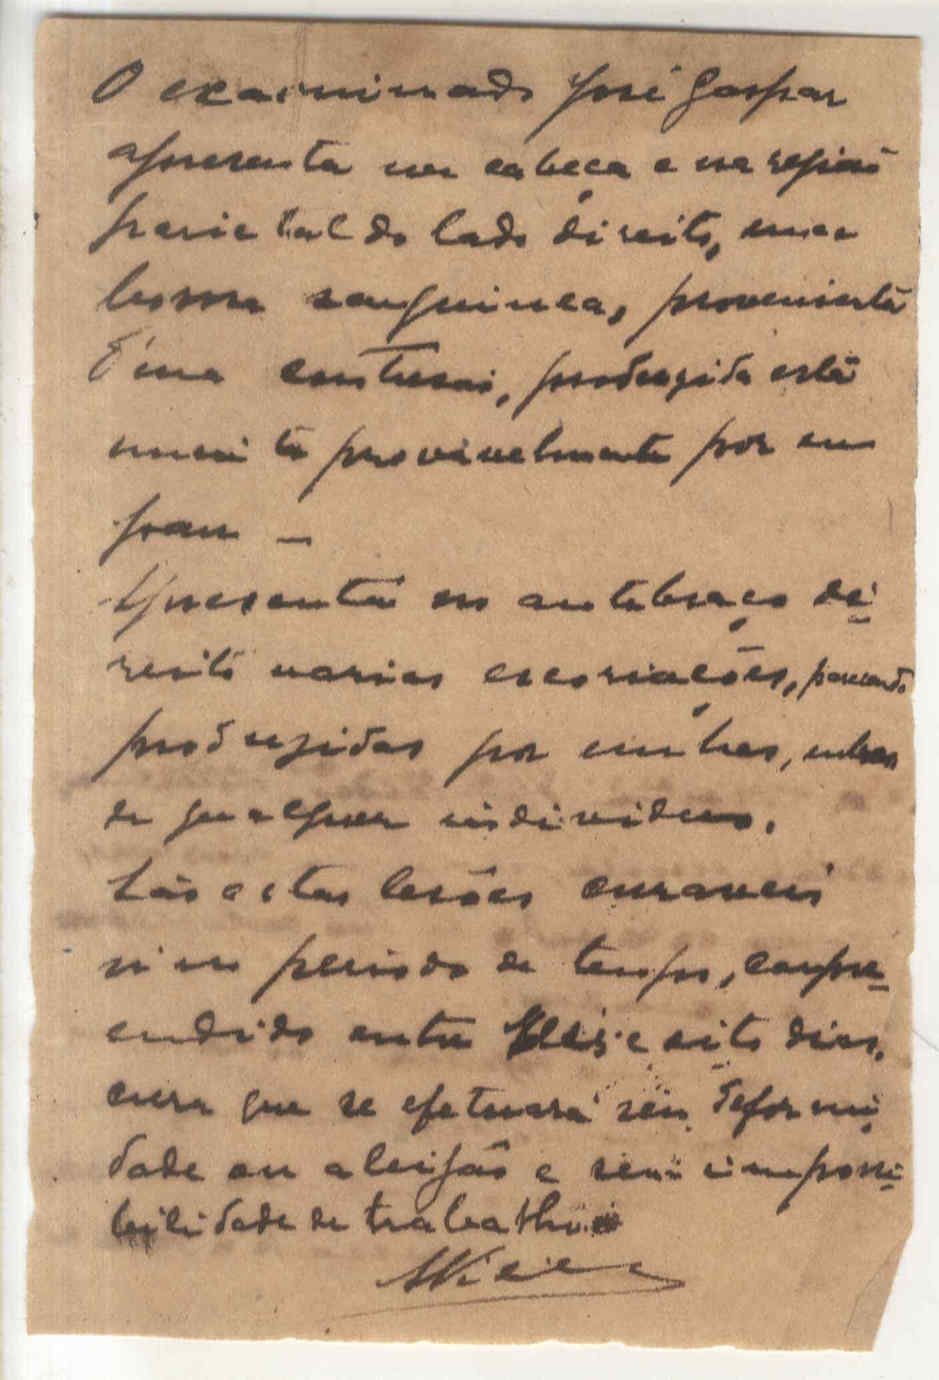 O examinado José Gaspar
apresenta na cabeça e na região
parietal do lado direito, uma
bossa sanguinea, proveniente
d'uma contusão, produzida esta
muito provavelmente por um
pau —
Apresenta no antebraço di-
reito varias escoriações, parecendo
produzidas por unhas, unhas
de qualquer individuo.
São estas lesões curaveis
n'um periodo de tempo, compre-
endido entre seis e oito dias,
cura que se efetuará sem deformi-
dade ou aleijão e sem impossi-
bilidade de trabalho